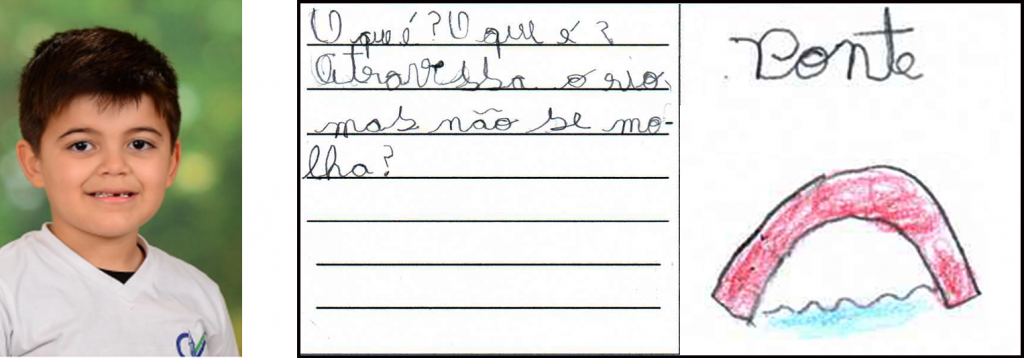 O que é? O que é?
Atravessa o rio
mas não se mo-
lha?
Ponte